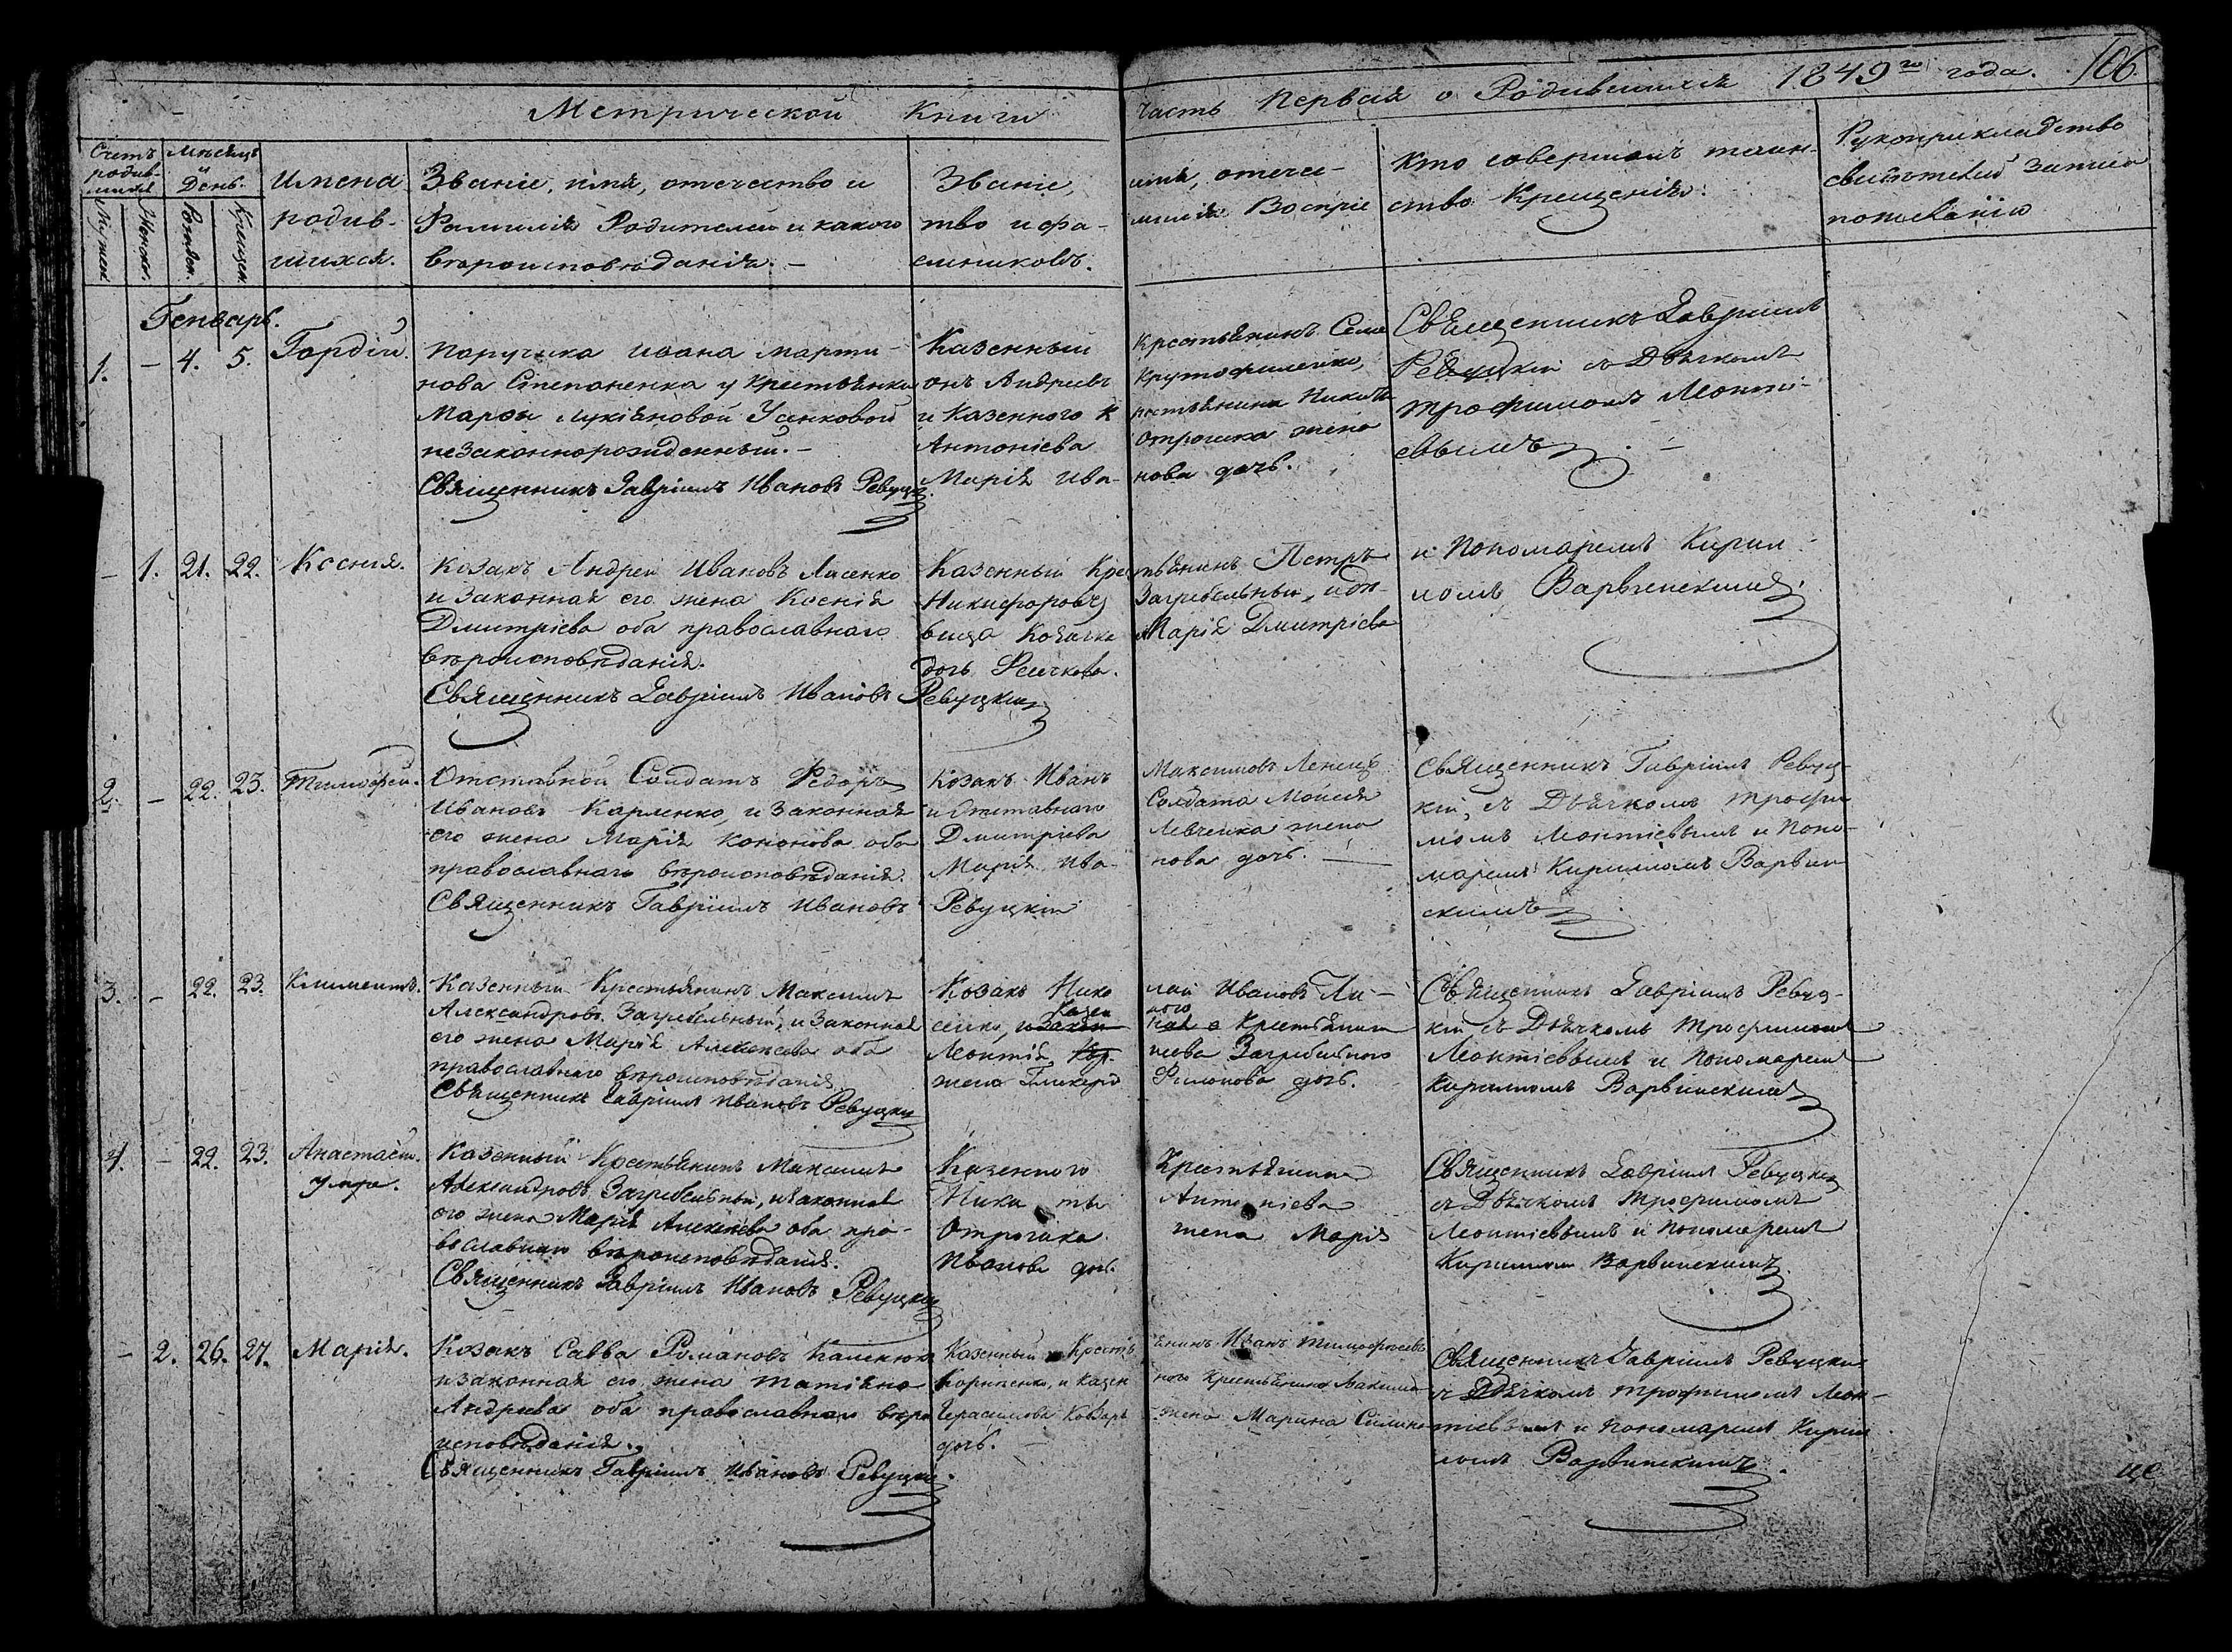 Метрической Книги часть Первая о Родившихся 1849го года. 106.
Счетъ родив-шихся
Мужск.
Женск.
Мѣсяцъ и День.
Рожден.
Крещен.
Имена
родив-
шихся.
Званіе, имя, отечество и
Фамилія Родителей и какого
вѣроисповѣданія.-
Званіе, имя, отече-
тво и фа- милія Воспріе
емниковъ.
Кто совершалъ таин-
ство Крещенія.
Рукоприкладство
свидѣтелей записи
по желанію
Генварь.
1. - 4. 5. Гордій.
Поручика Ивана Марти-
нова Степаненка у крестьянки
Марѳы Лукіяновой Усенковой
незаконнорожденный.-
Священникъ Гавріилъ Ивановъ Ревуцкій
Казенный Крестьянинъ Семе
онъ Андреевъ
и Казенного К рестьянина Никиты
Антоніева Отрошка жена
Марія Ива- нова дочь.
Священникъ Гавріилъ
Ревуцкій съ Дьячкомъ
Трофимомъ Леонті-
евымъ
- 1. 21. 22. Ксенія.
Козакъ Андрей Ивановъ Лисенко
и законная его жена Ксенія
Дмитріева оба православнаго
вѣроисповѣданія.
Священникъ Гавріилъ Ивановъ Ревуцкій
Казенный Крестьянинъ Петръ
Никифоровъ Загребельный, и дѣ-
вица Козачка Марія Дмитріева
дочь
и Пономаремъ Кирил-
ломъ Варвинскимъ.
2. - 22. 23. Тимофей.
Отставной Солдатъ Ѳедоръ
Ивановъ Карпенко, и законная
его жена Марія Кононова оба
православнаго вѣроисповѣданія.
Священникъ Гавріилъ Ивановъ Ревуцкій
Козакъ Иванъ Максимовъ
и Отставнаго Солдата Мойсея
Дмитріева Левченка жена
Марія Ива- нова дочь.
Священникъ Гавріилъ Ревуц-
кій, съ Дьячкомъ Трофи-
момъ Леонтіевымъ и Поно-
маремъ Кирилломъ Варвин-
скимъ
3. - 22. 23. Климентъ.
Казенный Крестьянинъ Максимъ
Александровъ Загребельный, и законная
его жена Марія Алексѣева оба
православнаго вѣроисповѣданія.
Священникъ Гавріилъ Ивановъ Ревуцкій
Козакъ Нико лай Ивановъ Ли-
сенко, и Казен ного Крестьянина
Леонтія Загребельного
жена Гликерія Филонова дочь.
Священникъ Гавріилъ Ревуц-
кій съ Дьячкомъ Трофимомъ
Леонтіевымъ и Пономаремъ
Кирилломъ Варвинскимъ
4. - 22. 23. Анастасій.
умре.
Казенный Крестьянинъ Максимъ
Александровъ Загребельный, и законная
его жена Марія Алексѣева оба пра-
вославнаго вѣроисповѣданія.
Священникъ Гавріилъ Ивановъ Ревуцкій
Казенного Крестьянина
Ники ты Антоніева
Отрошка жена Марія
Иванова дочь.
Священникъ Гавріилъ Ревуцкій
съ Дьячкомъ Трофимомъ
Леонтіевымъ и Пономаремъ
Кирилломъ Варвинскимъ.
- 2. 26. 27. Марія.
Козакъ Савва Романовъ
и законная его жена Татіяна
Андреева оба православнаго вѣро
исповѣданія.
Священникъ Гавріилъ Ивановъ Ревуцкій.
Казенный Крестьянинъ Иванъ Тимофѣевъ
и Казен ного Крестьянина Максима
Герасимова жена Марина
дочь.
Священникъ Гавріилъ Ревуцкій
съ Дьячкомъ Трофимомъ Леон-
тіевымъ и Пономаремъ Кирил
ломъ Варвинскимъ.